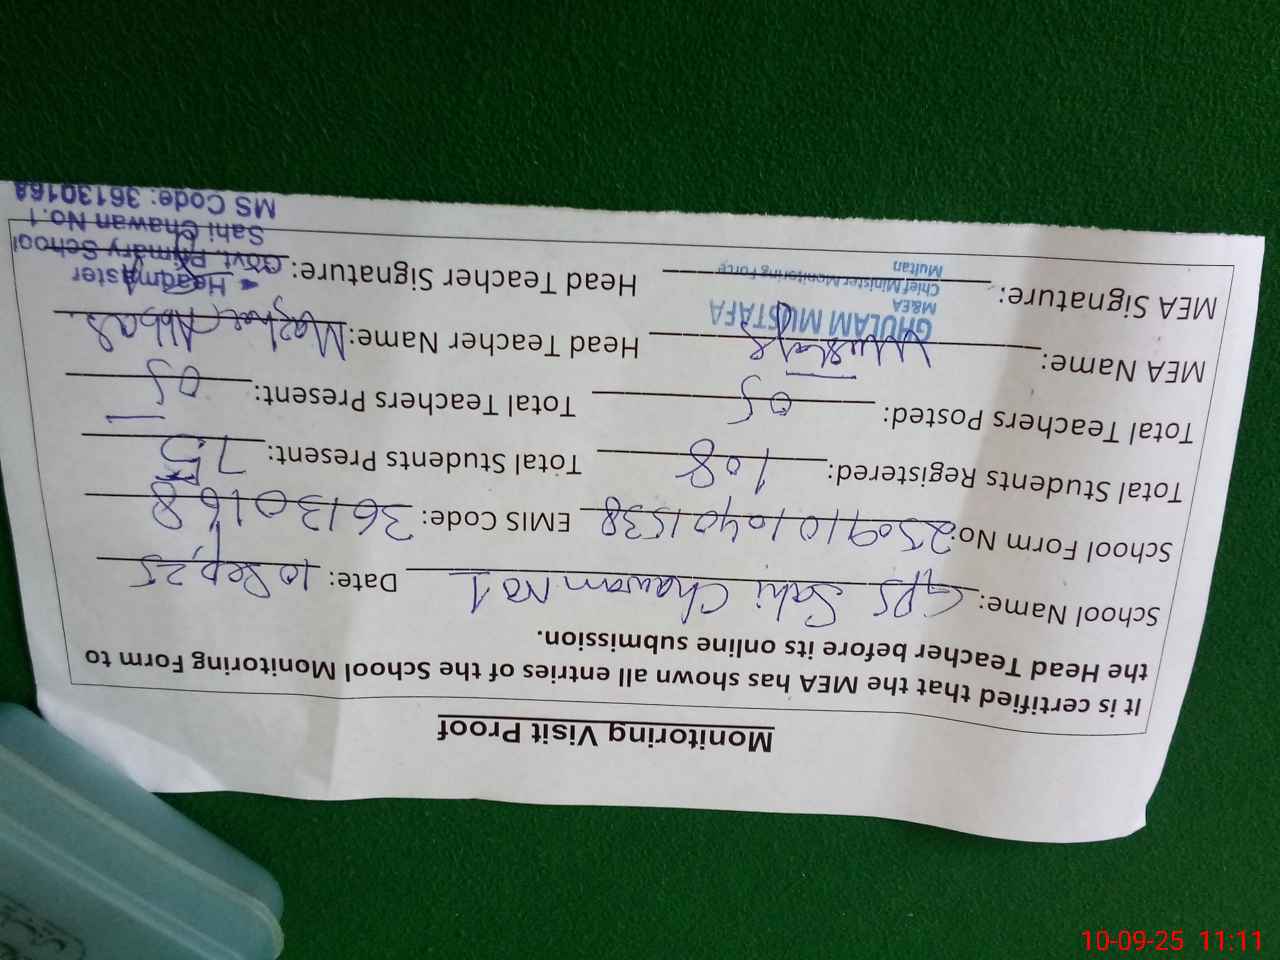 Monitoring Visit Proof
It is certified that the MEA has shown all entries of the School Monitoring Form to
the Head Teacher before its online submission.
School Name: GPS Sahi Chawan No 1 Date: 10 Sep, 25
School Form No: 25091010401538 EMIS Code: 36130168
Total Students Registered: 108 Total Students Present: 75
Total Teachers Posted: 05 Total Teachers Present: 05
MEA Name: Mustafa Head Teacher Name: Mazhar Abbas
GHULAM MUSTAFA
M&EA
Chief Minister Monitoring Force
Multan
MEA Signature: Head Teacher Signature:
Headmaster
Govt. Primary School
Sahi Chawan No.1
MS Code: 36130168
10-09-25 11:11